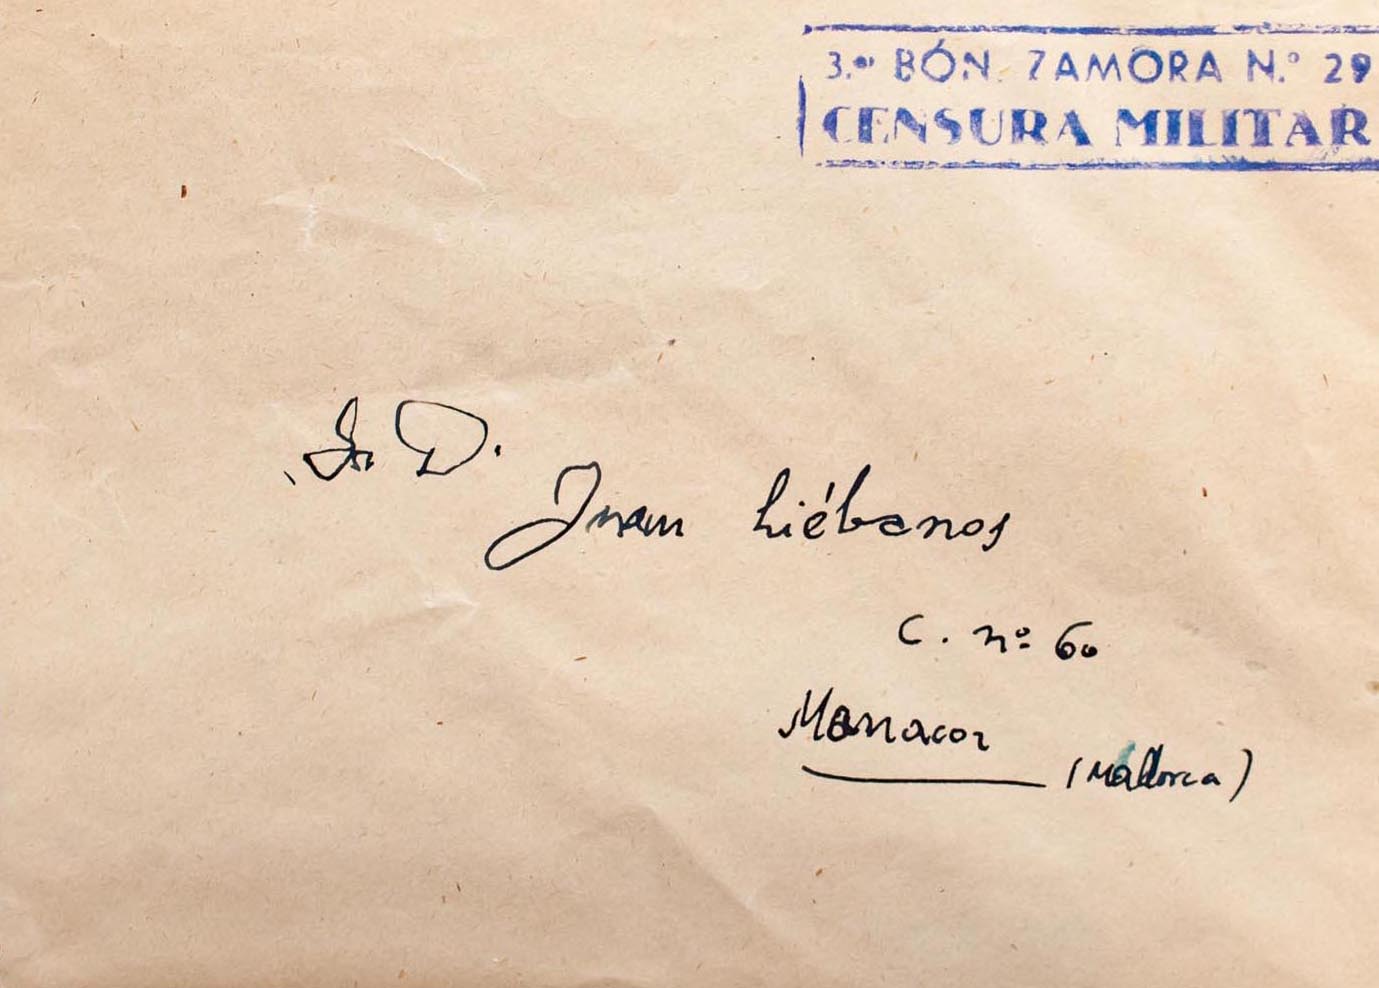 3.er BÓN. ZAMORA N.º 29
CENSURA MILITAR
Sr. D.
Juan Liébanos
C. nº 60
Manacor
(Mallorca)